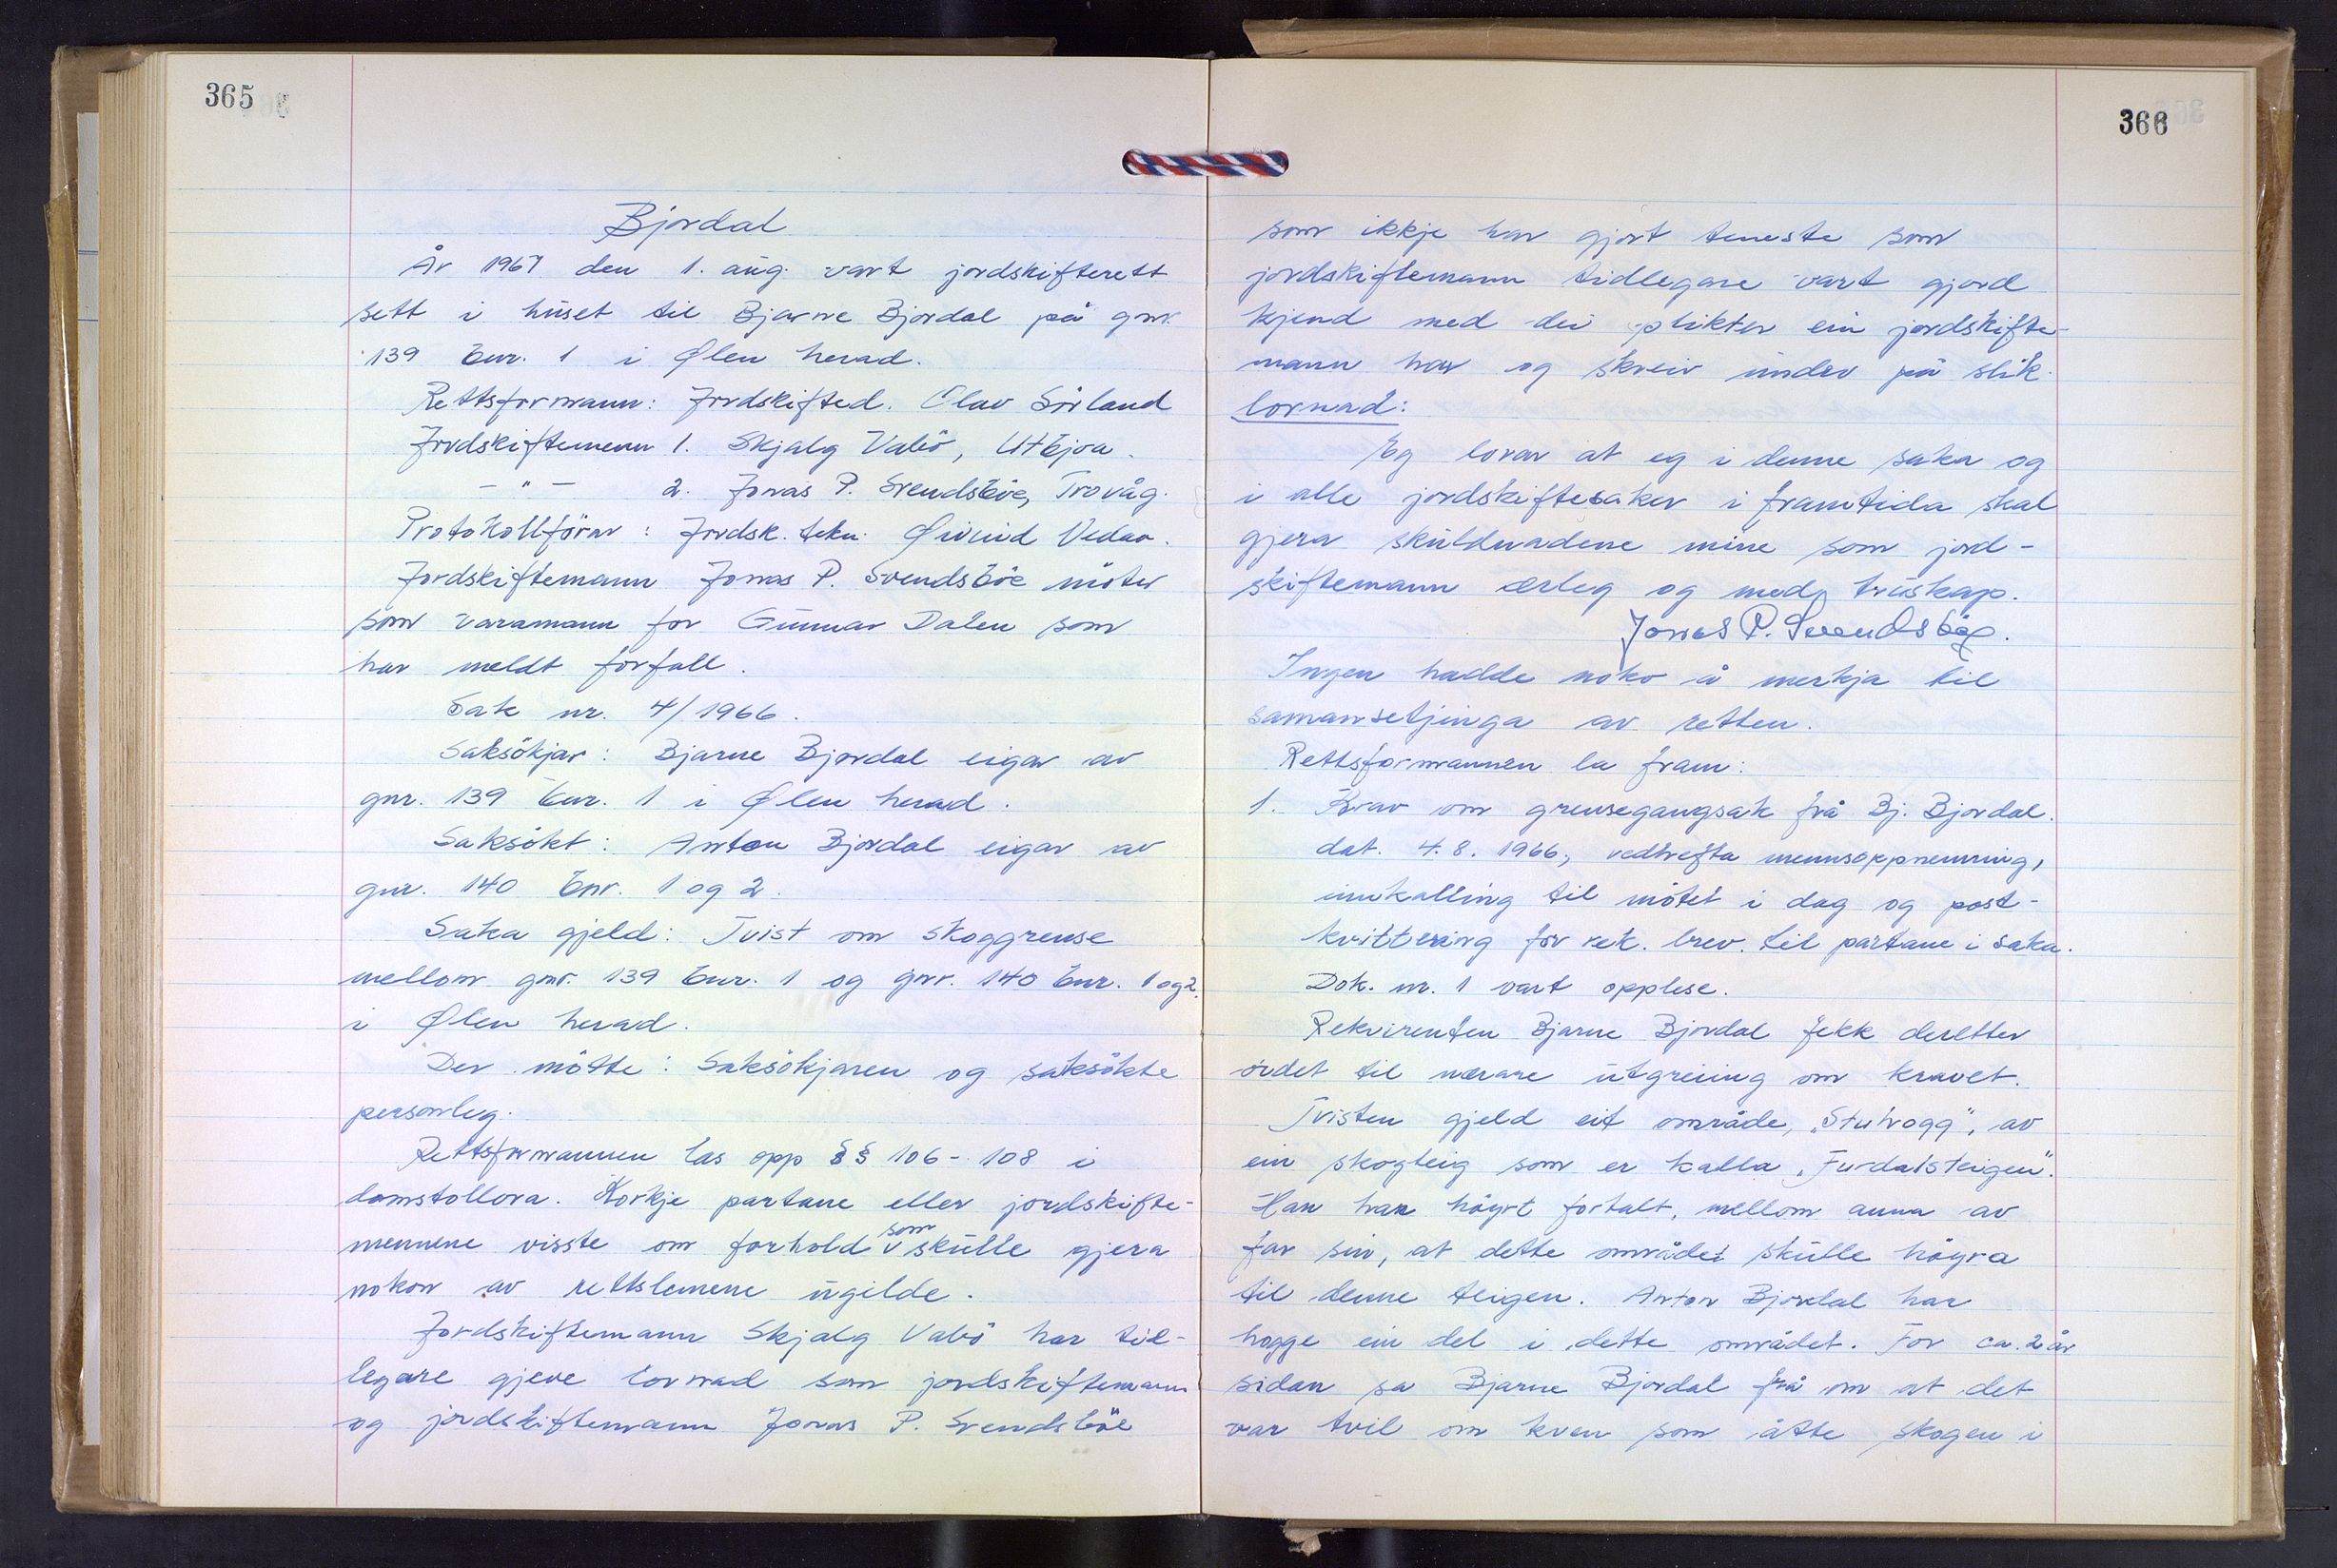 365
Bjordal
År 1967 den 1. aug. vart jordskifterett
sett i huset til Bjarne Bjordal på gnr.
139 bnr. 1 i Ølen herad.
Rettsformann: Jordskifted. Olav Sörland
Jordskiftemenn 1. Skjalg Vabö, Utbjoa.
— " — 2. Jonas P. Svendsböe, Trovåg.
Protokollförar: Jordsk. tekn. Øivind Vedaa.
Jordskiftemann Jonas P. Svendsböe möter
som varamann for Gunnar Dalen som
har meldt forfall.
Sak nr. 4/1966.
Saksökjar: Bjarne Bjordal eigar av
gnr. 139 bnr. 1 i Ølen herad.
Saksökt: Anton Bjordal eigar av
gnr. 140 bnr. 1 og 2.
Saka gjeld: Tvist om skoggrense
mellom gnr. 139 bnr. 1 og gnr. 140 bnr. 1 og 2.
i Ølen herad.
Der mötte: Saksökjaren og saksökte
personleg.
Rettsformannen las opp §§ 106-108 i
domstollova. Korkje partane eller jordskifte-
mennene visste om forhold som skulle gjera
nokon av rettslemene ugilde.
Jordskiftemann Skjalg Vabö har tid-
legare gjeve lovnad som jordskiftemann
og jordskiftemann Jonas P. Svendsböe
366
som ikkje har gjort teneste som
jordskiftemann tidlegare vart gjord
kjend med dei plikter ein jordskifte-
mann har og skreiv under på slik
lovnad:
Eg lovar at eg i denne saka og
i alle jordskiftesaker i framtida skal
gjera skuldnadene mine som jord-
skiftemann ærleg og med truskap.
Jonas P. Svendsbøe.
Ingen hadde noko å merkja til
samansetjinga av retten.
Rettsformannen la fram:
1. Krav om grensegangsak frå Bj. Bjordal.
dat. 4.8.1966, vedhefta mennsoppnemning,
innkalling til mötet i dag og post-
kvittering for rek. brev til partane i saka.
Dok. nr. 1 vart opplese.
Rekvirenten Bjarne Bjordal fekk deretter
ordet til nærare utgreiing om kravet.
Tvisten gjeld eit område, "Stuhogg", av
ein skogteig som er kalla "Furdalsteigen".
Han har höyrt fortalt, mellom anna av
far sin, at dette området skulle höyra
til denne teigen. Anton Bjordal har
hogge ein del i dette området. For ca. 2 år
sidan sa Bjarne Bjordal frå om at det
var tvil om kven som åtte skogen i